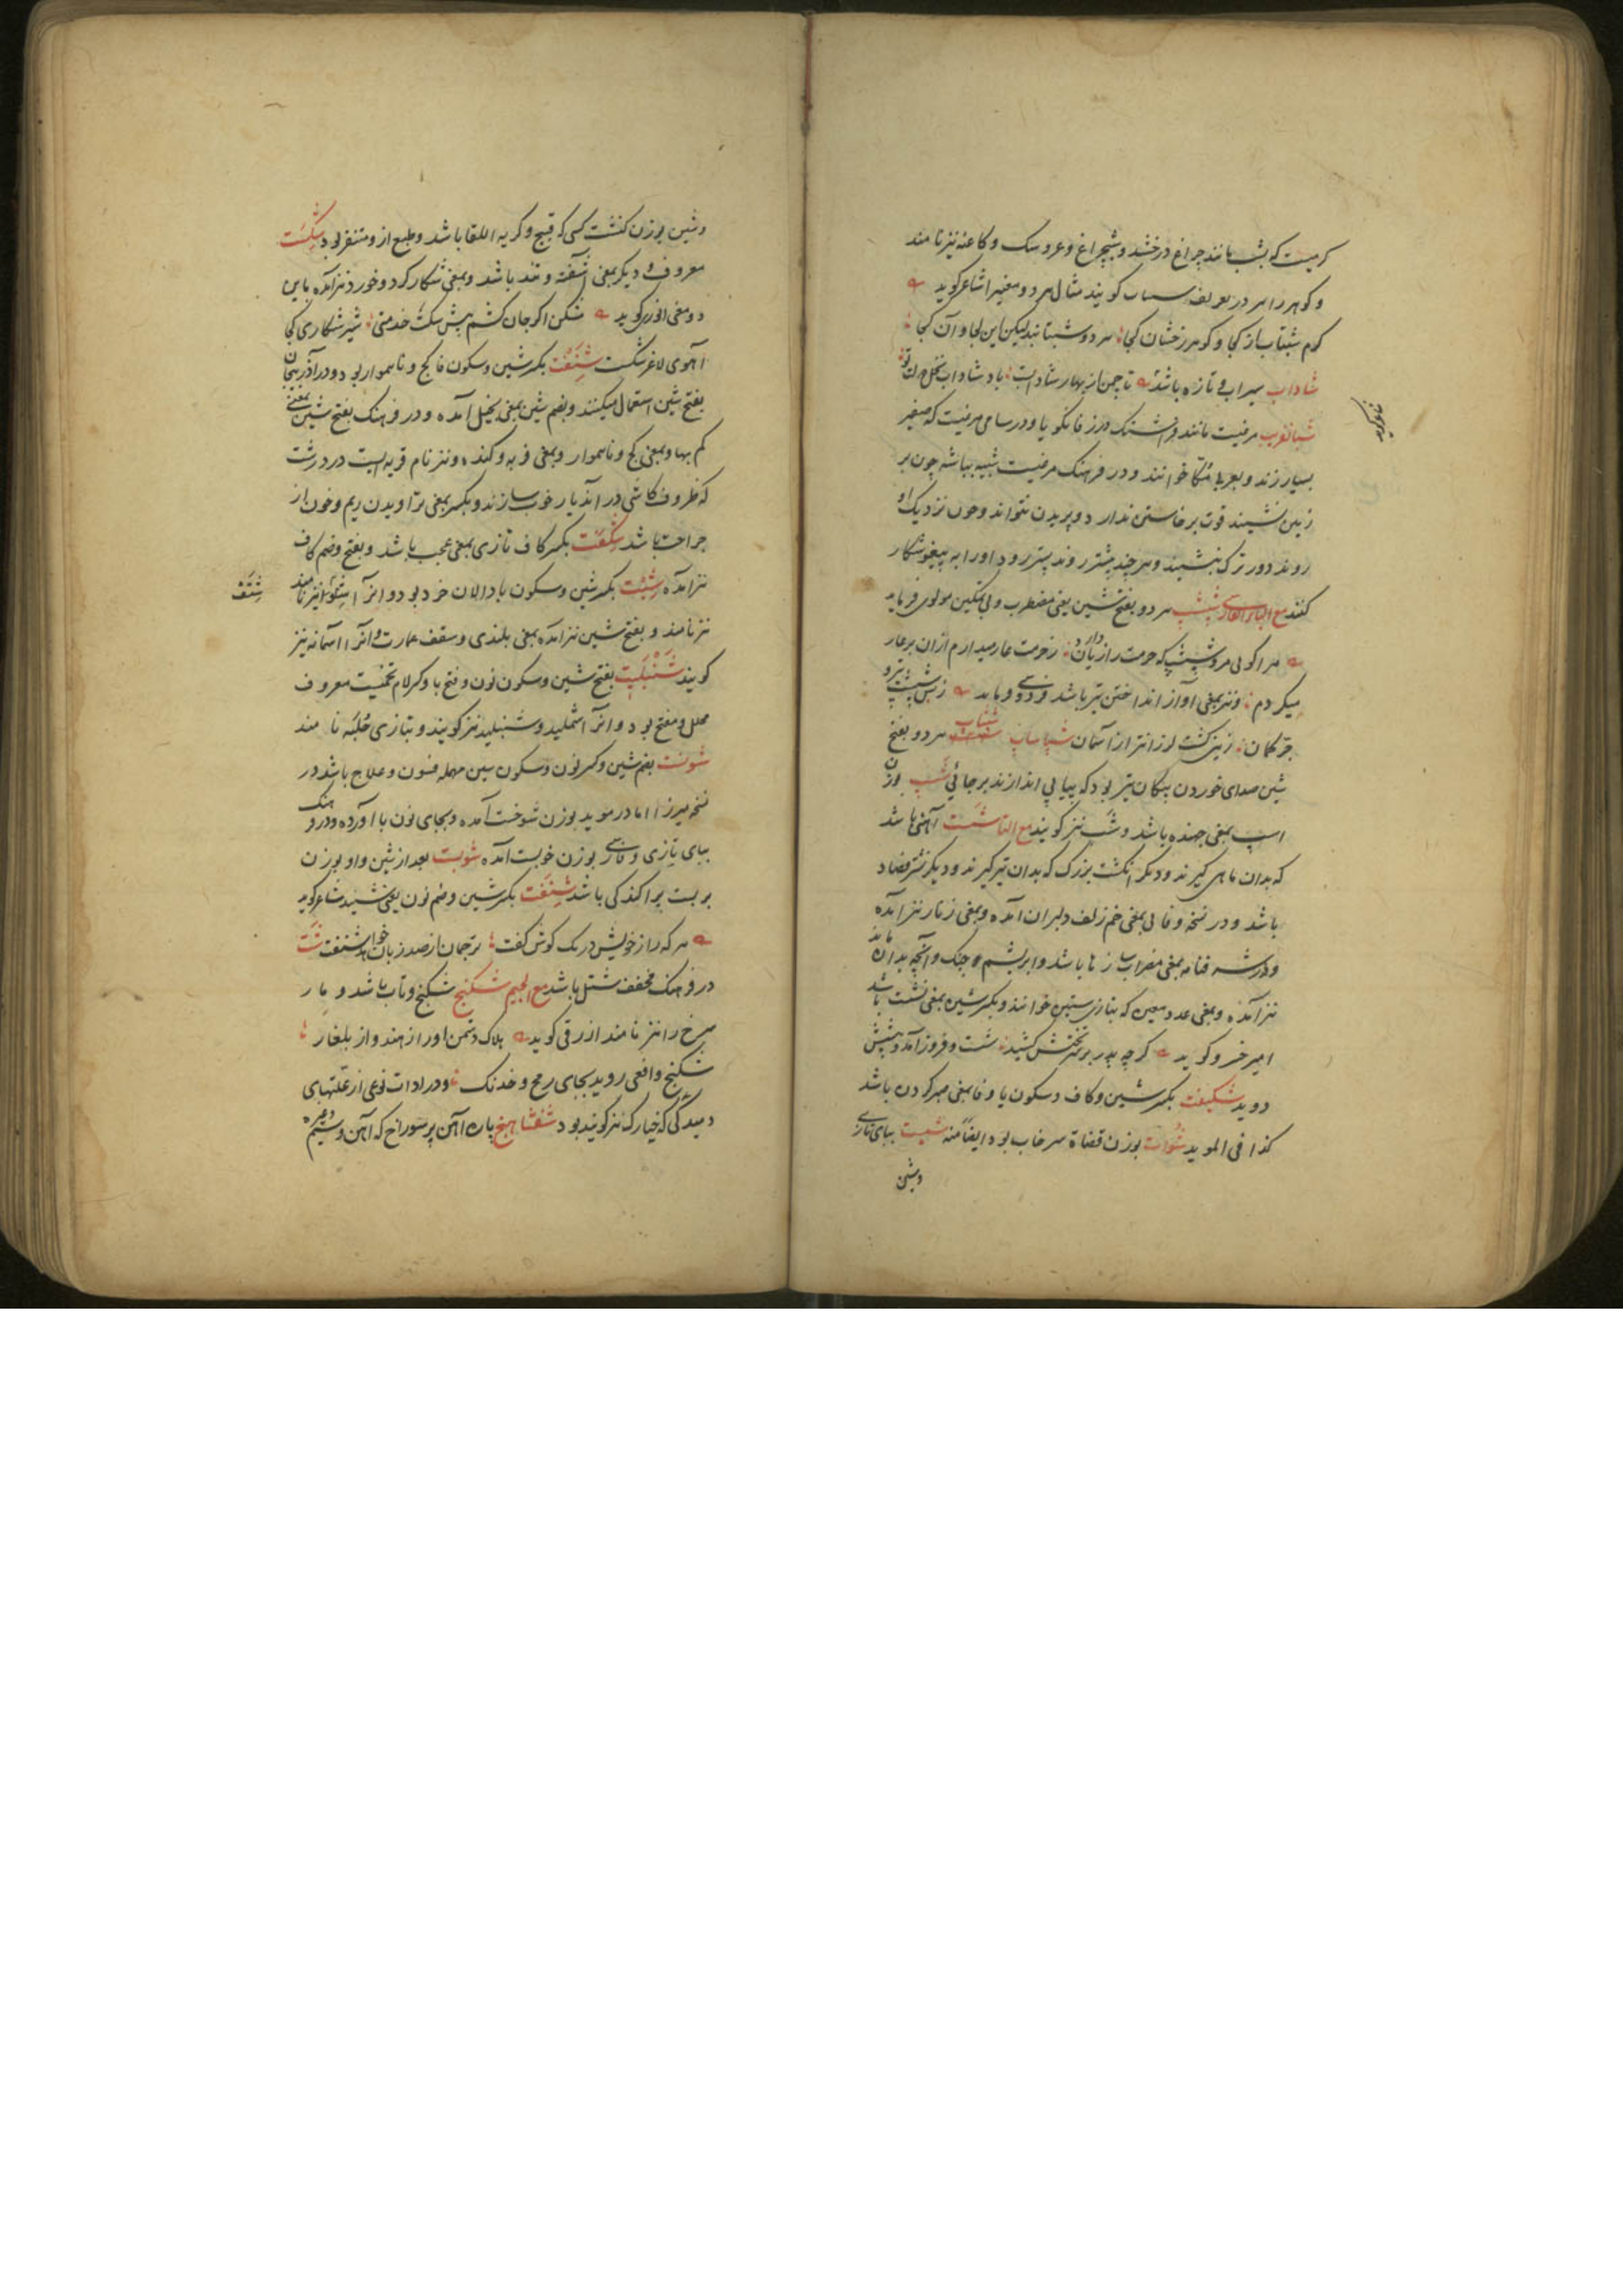 کرمیست که بشب مانند چراغ درخشد و شبچراغ و عروسک و کاغنه نیز نامند
و کوهر را در تعریف کویند مثال هر دو معنی را شاعر کوید
کرم شبتاب از کجا و کوهر رخشان کجا هر دو شبتابند لیکن این کجا و آن کجا
شاداب سیراب و تازه باشد تا چمن از بهار شادابست باد شاداب نخل
شبانفریب مرغیست مانند در و در سامی مرغیست که صفیر
بسیار زند و بعربی مکا خوانند و در فرهنک مرغیست شبیه بباشه چون بر
زمین نشیند قوت برخاستن ندارد و پریدن نتواند و چون نزدیک او
روند دورترک نشیند و هر چند پیشتر روند پستر رود و او را به پیغو شکار
کنند مع الباء الفارسی شپشپ هر دو بفتح شین یعنی مضطرب و بی تمکین مولوی فرماید
مرا کوئی مرو شپشپ که حرمت را زیان دارد ز حرمت عار میدارم ازان بر عار
میکردم و نیز بمعنی آواز انداختن تیر باشد فردوسی فرماید ز بس شپشپ تیر و
جر کمان زمین کشت لرزانتر از آسمان شپاشاپ شپاشپ هر دو بفتح
شین صدای خوردن پیکان تیر بود که پیاپی اندازند بر جائی شپ بوزن
اسپ بمعنی جهنده باشد و شب نیز کویند مع التا شست آهنی باشد
که بدان ماهی کیرند و دیکر انکشت بزرک که بدان تیر کیرند و دیکر نشتر فصاد
باشد و در نسخه وفائی بمعنی خم زلف دلبران آمده و بمعنی زنار نیز آمده
و در شرفنامه بمعنی مضراب سازها باشد و ابریشم چنک و آنچه بدان ماند
نیز آمده و بمعنی عدد معین که بتازی ستین خوانند و بکسر شین بمعنی نشست باشد
امیر خسرو کوید کرچه پدر بر سر تختش کشید شست و فروز آمد و پیشش
دوید شکیفت بکسر شین و کاف و سکون یا و فا بمعنی صبر کردن باشد
کذا فی الموید شوات بوزن قضاة سرخاب بود ایضا منه شیت ببای تازی
و شین
و شین بوزن کنشت کسی که قبیح و کریه اللقا باشد و طبع از و متنفر بود شکست
معروف و دیکر بمعنی آشفته و تند باشد و بمعنی شکار کرد و خورد نیز آمده باین
دو معنی انوری کوید شکن اکر جان کشم پیش سکت خدمتی شیر شکاری کجا
آهوی لاغر شکست شفت بکسر شین و سکون فا کج و ناهموار بود و در آذربیجان
بفتح شین استعمال میکنند و بضم شین بمعنی بخیل آمده و در فرهنک بفتح شین بمعنی
کم بها و بمعنی کج و ناهموار و بمعنی فربه و کنده و نیز نام قریه ایست در درشت
که ظروف کاشی در آن دیار خوب سازند و بکسر بمعنی تراویدن ریم و خون از
جراحت باشد شکفت بکسر کاف تازی بمعنی عجب باشد و بفتح و ضم کاف
نیز آمده شبت بکسر شین و سکون با دالان خرد بود و آنرا نیز نامند
نیز نامند و بفتح شین نیز آمده بمعنی بلندی و سقف عمارت و آنرا آسمانه نیز
کویند شنبلیت بفتح شین و سکون نون و فتح با و کسر لام تخمیست معروف
محلل و مفتح بود و آنرا شملید و شنبلید نیز کویند و بتازی حلبه نامند
شونست بضم شین و کسر نون و سکون سین مهمله فسون و علاج باشد در
نسخه میرزا اما در موید بوزن شوخت آمده و بجای نون با آورده و در فرهنک
ببای تازی و فارسی بوزن خوبست آمده شوبست بعد از شین واو بوزن
بربست پراکندکی باشد شنفت بکسر شین و ضم نون یعنی شنید شاعر کوید
هر که راز خویش در یک کوش کفت ترجمان از صد زبان خواهد شنفت شت
در فرهنک مخفف شتل باشد مع الجیم شکنج شکنج و تاب باشد و مار
سرخ را نیز نامند ازرقی کوید هلاک دشمن او را ز هند و از بلغار
شکنج و افعی روید بجای رمح و خدنک و در ادات نوعی از علتهای
دمیدکی که خیارک نیز کویند بود شفشاهنج پاره آهن پر سوراخ که آهن و سیم